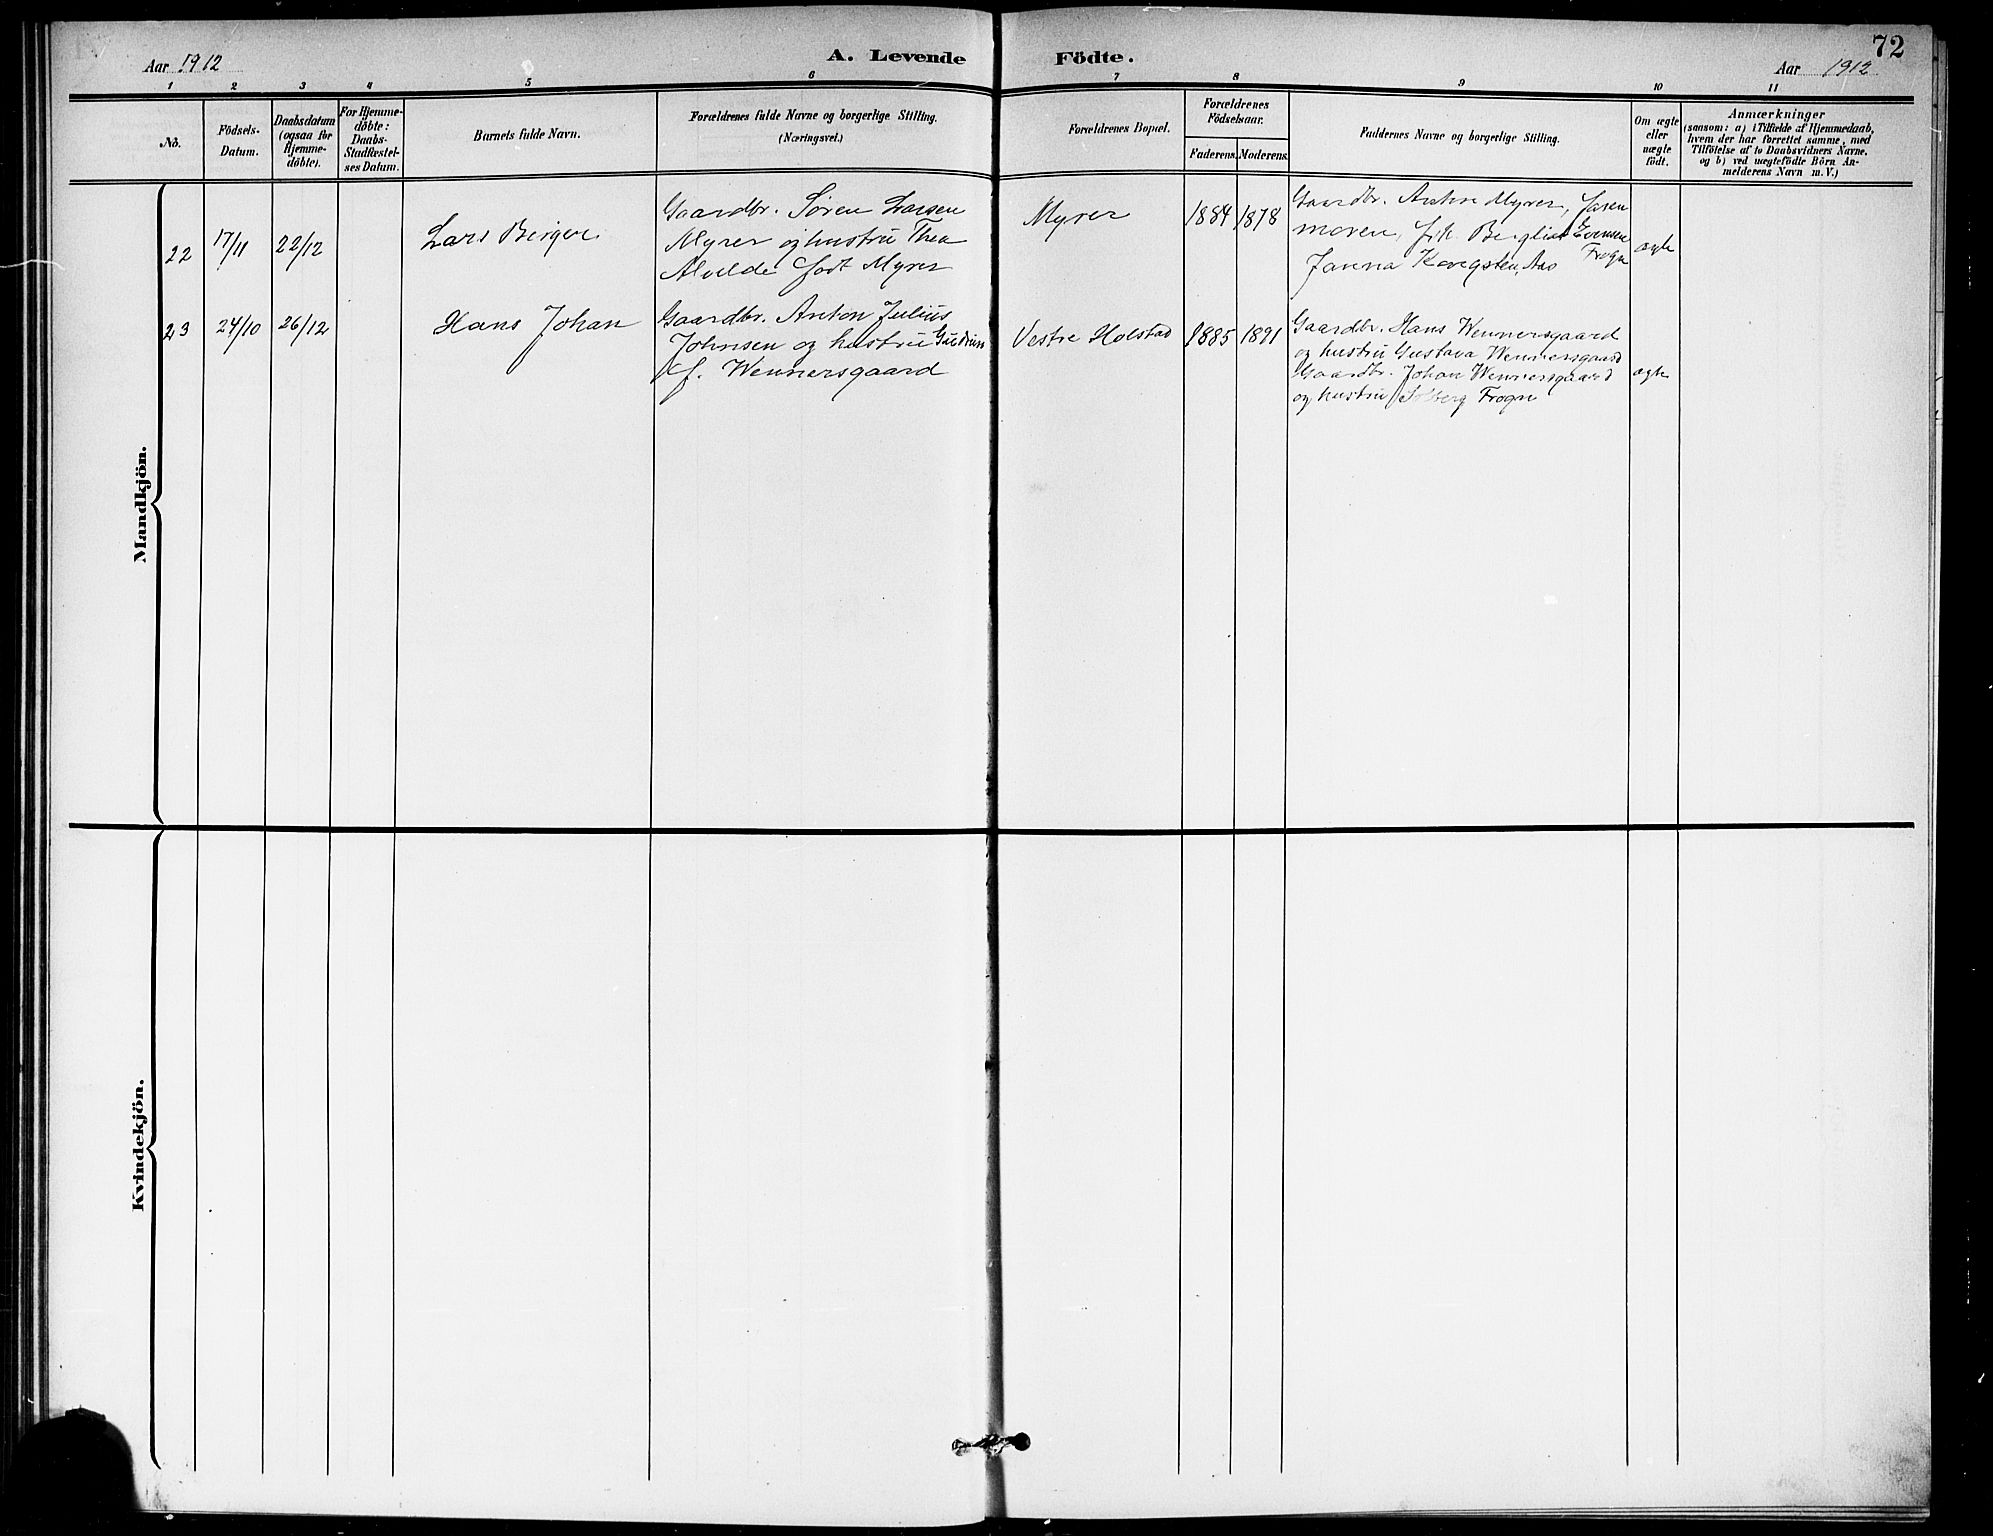 72
Aar 1912
A. Levende Födte.
Aar 1912
1 2 3 4 5 6 7 8 9 10 11
No.
Födsels-
Datum.
Daabsdatum
(ogsaa for
Hjemme-
döbte).
For Hjemme-
döbte:
Daabs-
Stadfæstel-
ses Datum.
Barnets fulde Navn.
Forældrenes fulde Navne og borgerlige Stilling.
(Næringsvei.)
Forældrenes Bopæl.
Forældrenes
Födselsaar.
Faderens. Moderens.
Faddernes Navne og borgerlige Stilling.
Om ægte
eller
uægte
födt.
Anmærkninger
(saasom: a) i Tilfælde af Hjemmedaab,
hvem der har forrettet samme, med
Tilföielse af to Daabsvidners Navne,
og b) ved uægtefödte Börn An-
melderens Navn m. V.)
Mandkjön.
22
17/11
22/12
Lars Birger
Gaardbr. Søren Larsen
Myrer og hustru Thea
Alvilde født Myrer
Myrer
1884 1878
Gaardbr. Anton Myrer,
moren, frk. Bergliot Evensen
Frogn
Janna Kongsten, Aas
ægte
23
24/10
26/12
Hans Johan
Gaardbr. Anton Julius
Johnsen og hustru Gudrun
f. Wennersgaard
Vestre Holstad
1885 1891
Gaardbr. Hans Wennersgaard
og hustru Gustava Wennersgaard
Gaardbr. Johan Wennersgaard
og hustru Solberg Frogn
ægte
Kvindekjön.